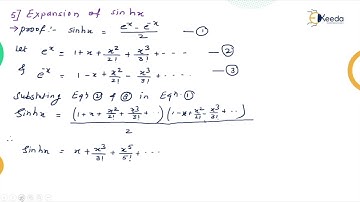 5] Expansion of sinhx
→ proof:- sinhx = e^x - e^-x / 2 — ①
Let e^x = 1 + x + x²/2! + x³/3! + - - - — ②
& e^-x = 1 - x + x²/2! - x³/3! - - - — ③
Substituting Eqn ② & ③ in Eqn ①
Sinhx = (1 + x + x²/2! + x³/3! + ··) (1 - x + x²/2! - x³/3! + ··) / 2
∴ Sinhx = x + x³/3! + x⁵/5! + - - -
Ekeeda